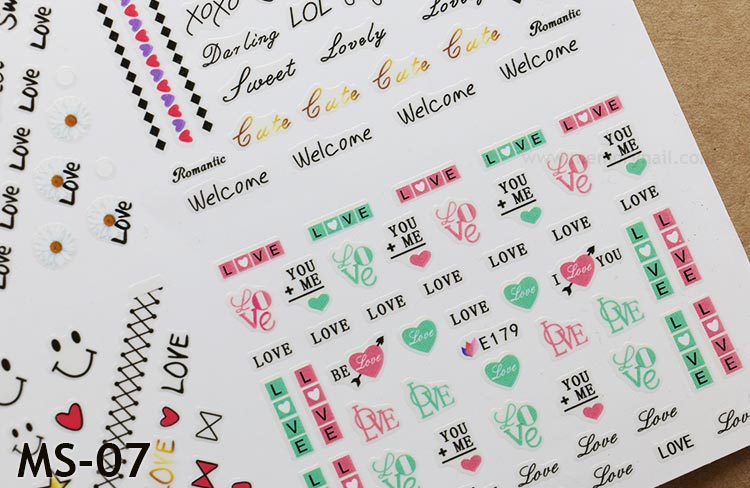 XOXO
LOL
Lovely
Darling
Lovely
Romantic
Sweet
Cute Cute Cute Cute
Romantic
Welcome Welcome Welcome Welcome
L VE L VE L VE L VE L VE
LOVE YOU + ME LOVE YOU + ME LOVE YOU + ME LOVE YOU + ME
LOVE LOVE LOVE LOVE LOVE LOVE LOVE
BE Love Love LOVE Love I YOU
L VE L VE
E179
LOVE LOVE Love LOVE LOVE
L VE L VE
YOU + ME LOVE YOU + ME LOVE
L VE L VE
LOVE YOU + ME LOVE
Love Love Love Love
LOVE
Love
Love
LOVE
Love
Love
LOVE
LOVE
MS-07